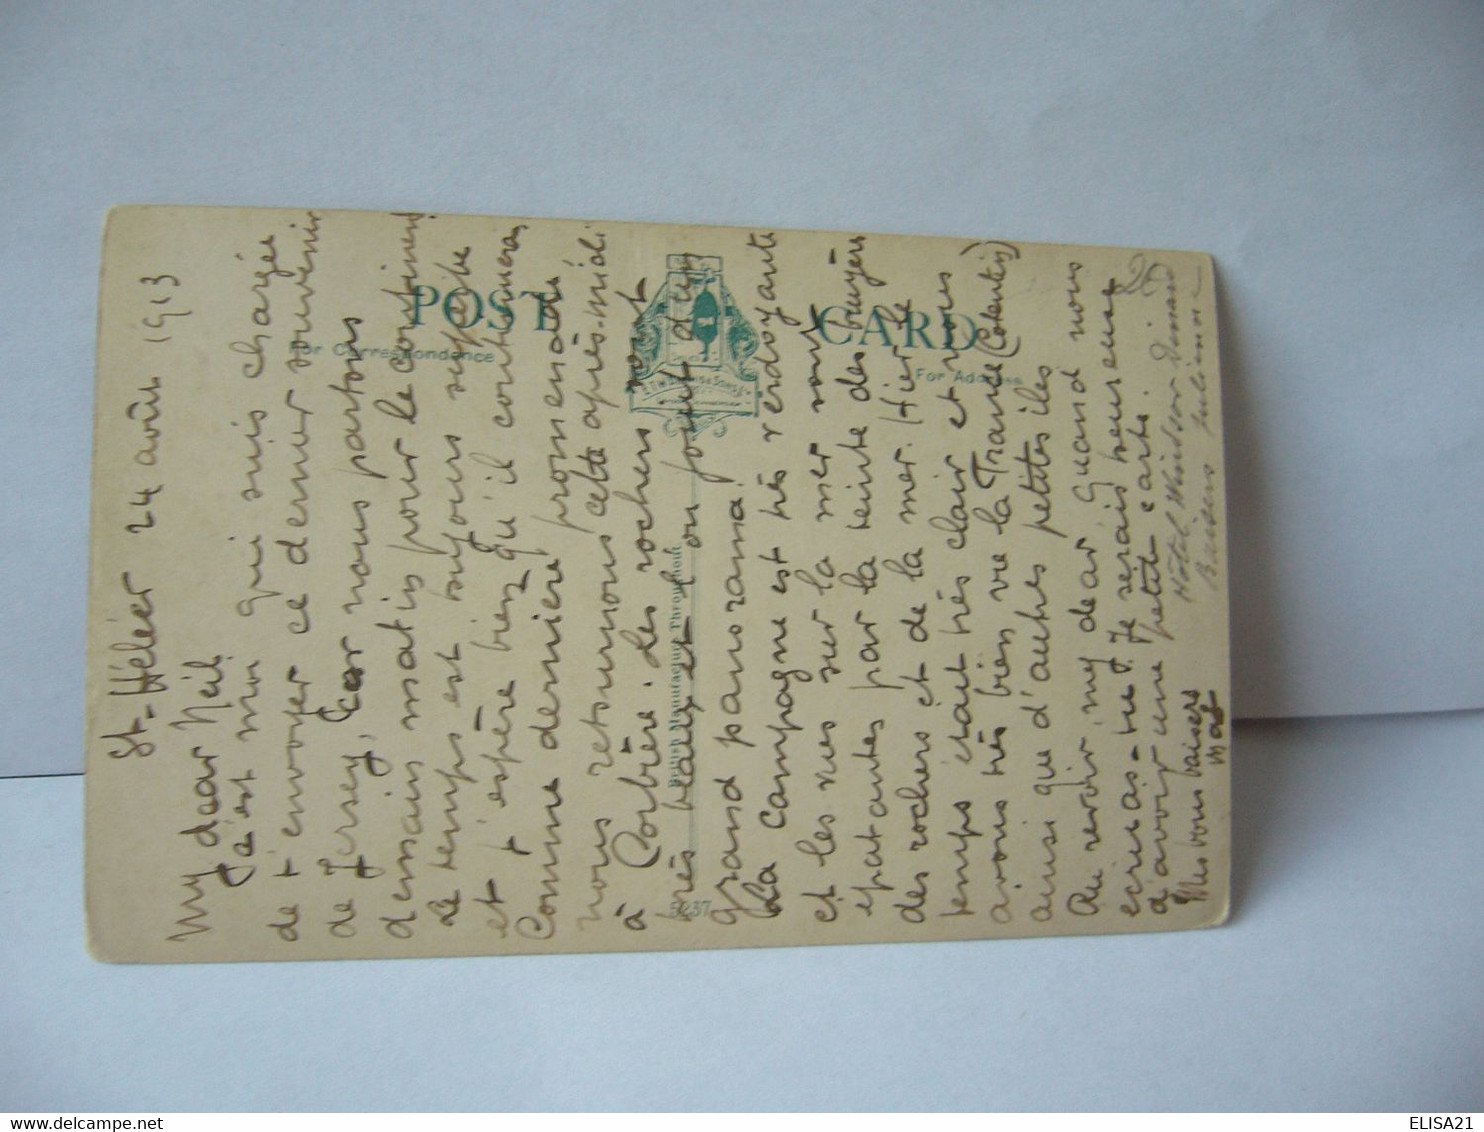 St-Hélier 24 août 1913
My dear Neil
C'est moi qui suis chargée
de t'envoyer ce dernier souvenir
de Jersey, car nous partons
demain matin pour le continent
Le temps est toujours superbe
et j'espère bien qu'il continuera
Comme dernière promenade
nous retournons cette après-midi
à Corbière. Les rochers sont
très beaux et l'on jouit d'un
grand panorama.
La campagne est très verdoyante
et les vues sur la mer sont
epatantes par la teinte des bruyères
des rochers et de la mer. Hier le
temps était très clair et nous
avons très bien vu la France (Cotentin)
ainsi que d'autres petites îles
Au revoir, my dear quand nous
ecriras-tu? Je serais heureuse
d'avoir une petite carte.
Hôtel Windsor Dinard
Mes bons baisers
Baisers
POST CARD
For Correspondence
For Address
British Manufacture Throughout
5237
ELISA21